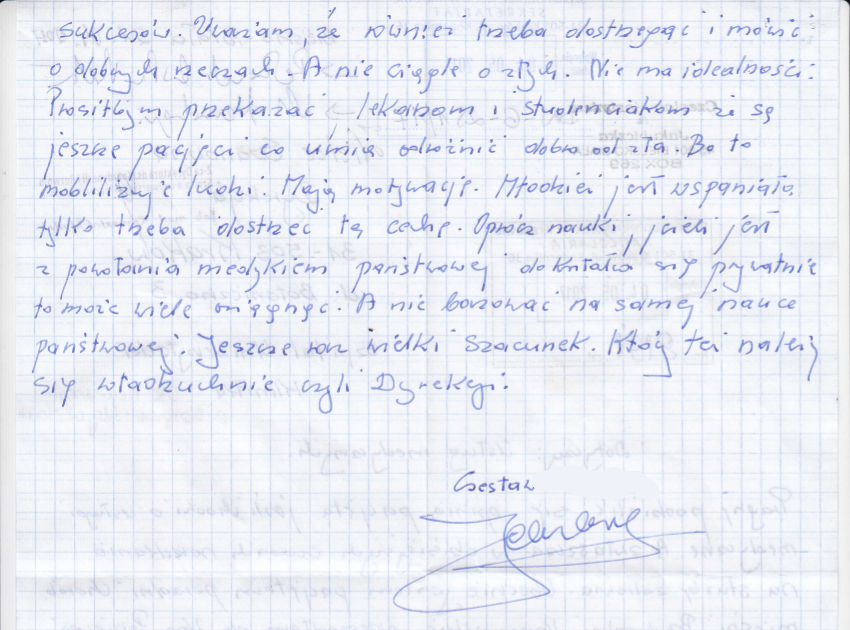 sukcesów. Uważam, że również trzeba dostrzegać i mówić
o dobrych rzeczach. A nie ciągle o złych. Nie ma idealności.
Prosiłbym przekazać lekarzom i studenciakom że są
jeszcze pacjęci co umią odróżnić dobro od zła. Bo to
moblilizuje ludzi. Mają motywację. Młodzież jest wspaniała
tylko trzeba dostrzec tą cechę. Oprócz nauki, jeżeli jest
z powołania medykiem państwowej dokształca się prywatnie
to może wiele osiągnąć. A nie bazować na samej nauce
państwowej. Jeszcze raz wielki szacunek. Któy też należy
się władzuchnie czyli Dyrekcji.
Czesław